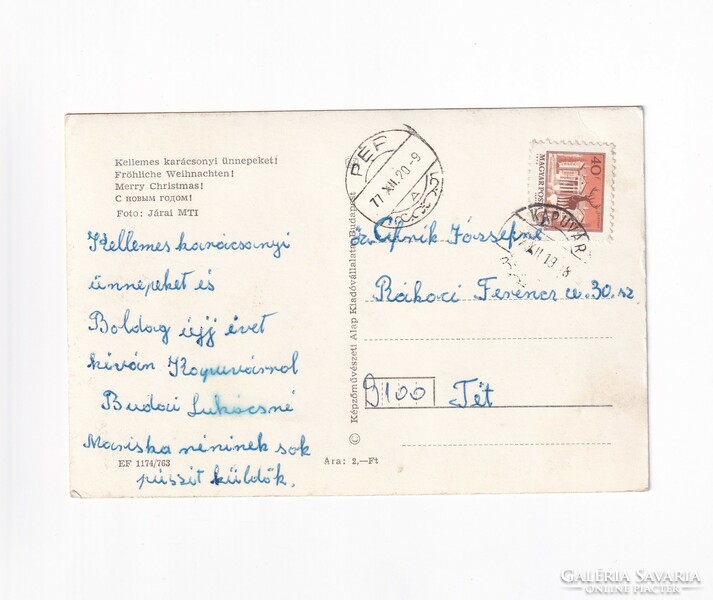 Kellemes karácsonyi ünnepeket!
Fröhliche Weihnachten!
Merry Christmas!
С новым годом!
Foto: Járai MTI
Kellemes karácsonyi
ünnepeket és
Boldog újj évet
kíván Kapuvárról
Budai Lukácsné
Mariska néninek sok
püssit küldök.
EF 1174/763
Ára: 2,—Ft
© Képzőművészeti Alap Kiadóvállalata, Budapest
PÉR
77.XII.20-9
MAGYAR POSTA
40f
KAPUVÁR
öz. Cifrik Józsefné
Rákóci Ferencz u. 30. sz
9100 Tét
GALÉRIA SAVARIA
ONLINE PIACTÉR